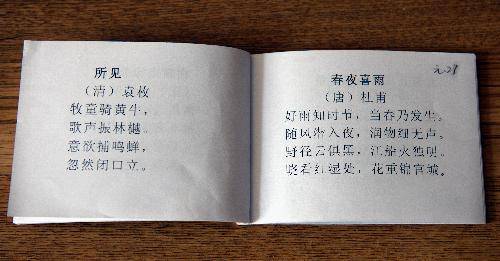 所见
（清）袁枚
牧童骑黄牛，
歌声振林樾。
意欲捕鸣蝉，
忽然闭口立。
春夜喜雨
（唐）杜甫
好雨知时节，当春乃发生。
随风潜入夜，润物细无声。
野径云俱黑，江船火独明。
晓看红湿处，花重锦官城。